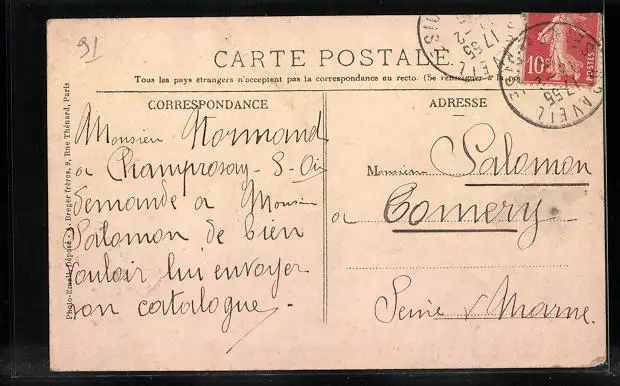 91
CARTE POSTALE
Tous les pays étrangers n'acceptent pas la correspondance au recto. (Se renseigner à la po
CORRESPONDANCE
Monsieur Normand
a Champrosay - S-Oise
demande a Monsieur
Salomon de bien
vouloir lui envoyer
son catalogue -
ADRESSE
Monsieur Salomon
a Tomery
Seine & Marne.
Photo-Email Déposé - A. Breger frères, 9, Rue Thénard, Paris
10c
POSTES
DRAVEIL
17 55